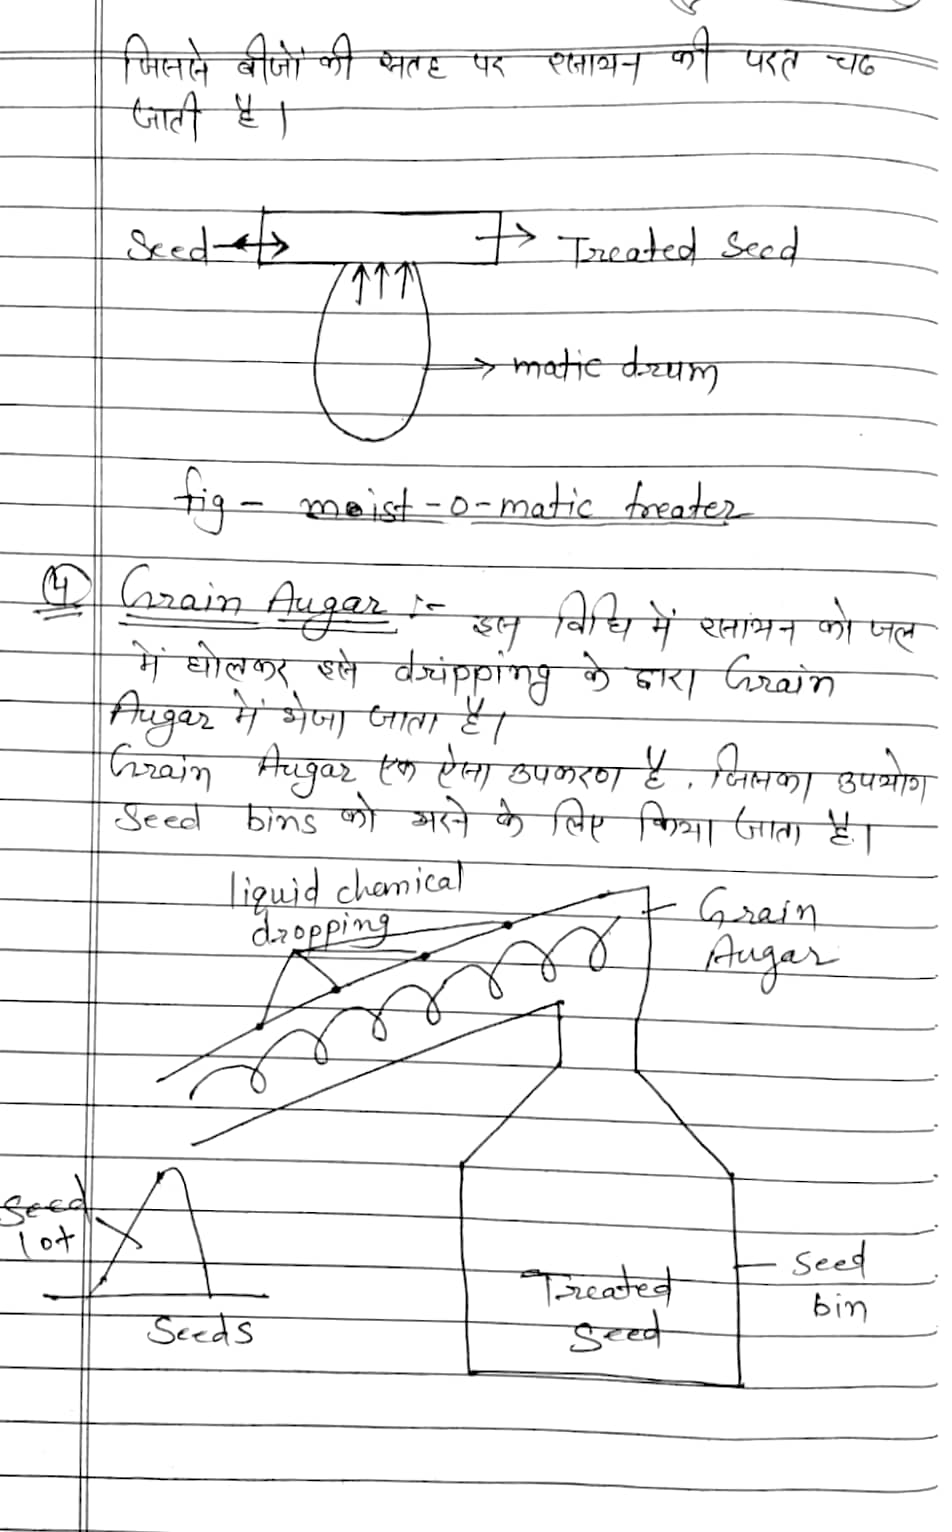 जिससे बीजों की सतह पर रसायन की परत चढ
जाती है।
Seed
Treated Seed
matic drum
fig - moist-o-matic treater
4 Grain Augar :- इस विधि में रसायन को जल
में घोलकर इसे dripping के द्वारा Grain
Augar में भेजा जाता है।
Grain Augar एक ऐसा उपकरण है, जिसका उपयोग
Seed bins को भरने के लिए किया जाता है।
liquid chemical
dropping
Grain
Augar
Seed
lot
Seeds
Treated
Seed
Seed
bin